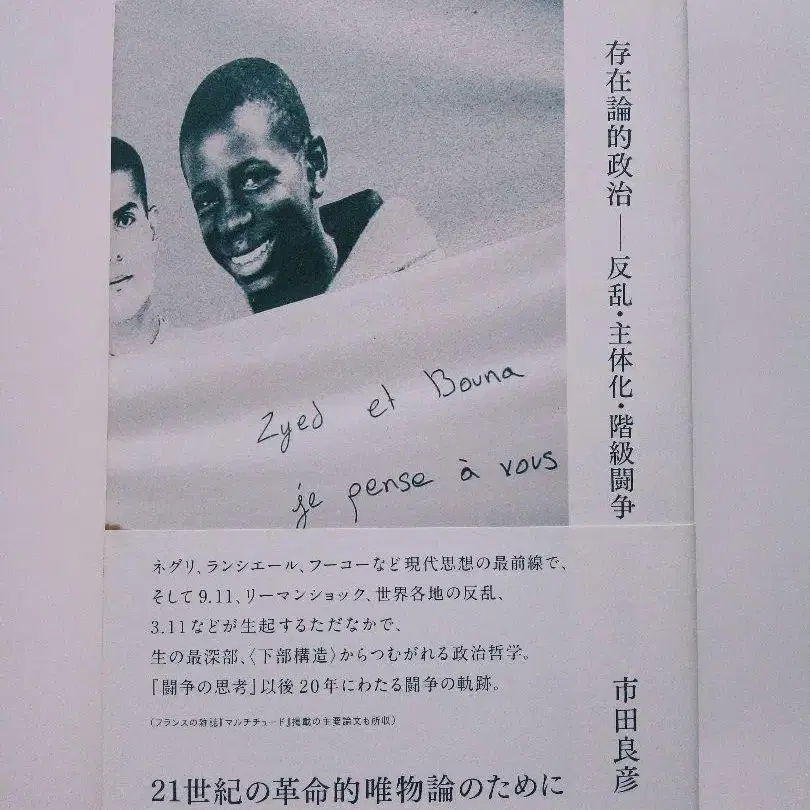 存在論的政治──反乱・主体化・階級闘争
市田良彦
Zyed et Bouna
je pense à vous
ネグリ、ランシエール、フーコーなど現代思想の最前線で、
そして9.11、リーマンショック、世界各地の反乱、
3.11などが生起するただなかで、
生の最深部、〈下部構造〉からつむがれる政治哲学。
『闘争の思考』以後20年にわたる闘争の軌跡。
(フランスの雑誌『マルチチュード』掲載の主要論文も所収)
21世紀の革命的唯物論のために